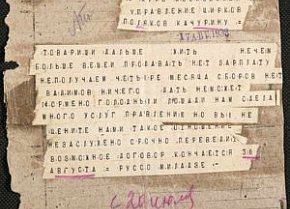 УПРАВЛЕНИЕ ЦИРКОВ
ПОЛЯКОВ КАЧУРИНУ =
ТОВАРИЩИ ДАЛЬШЕ ЖИТЬ НЕЧЕМ
БОЛЬШЕ ВЕЩЕЙ ПРОДАВАТЬ НЕТ ЗАРПЛАТУ
НЕПОЛУЧАЕМ ЧЕТЫРЕ МЕСЯЦА СБОРОВ НЕТ
ВАДИМОВ НИЧЕГО ДАТЬ НЕМОЖЕТ
КОРМЕНО ГОЛОДНЫИ ЛОШАДИ НАМ СДЕЛА
МНОГО УСЛУГ ПРАВЛЕНИЕ НО ВЫ НЕ
ЦЕНИТЕ НАМИ ТАКОЕ ОТНОШЕНИЕ
НЕЗАСЛУЖЕНО СРОЧНО ПЕРЕВЕДИТЕ
ВОЗМОЖНОЕ ДОГОВОР КОНЧАЕТСЯ
АВГУСТА = РУССО МИЛАДЗЕ
С 20 июля